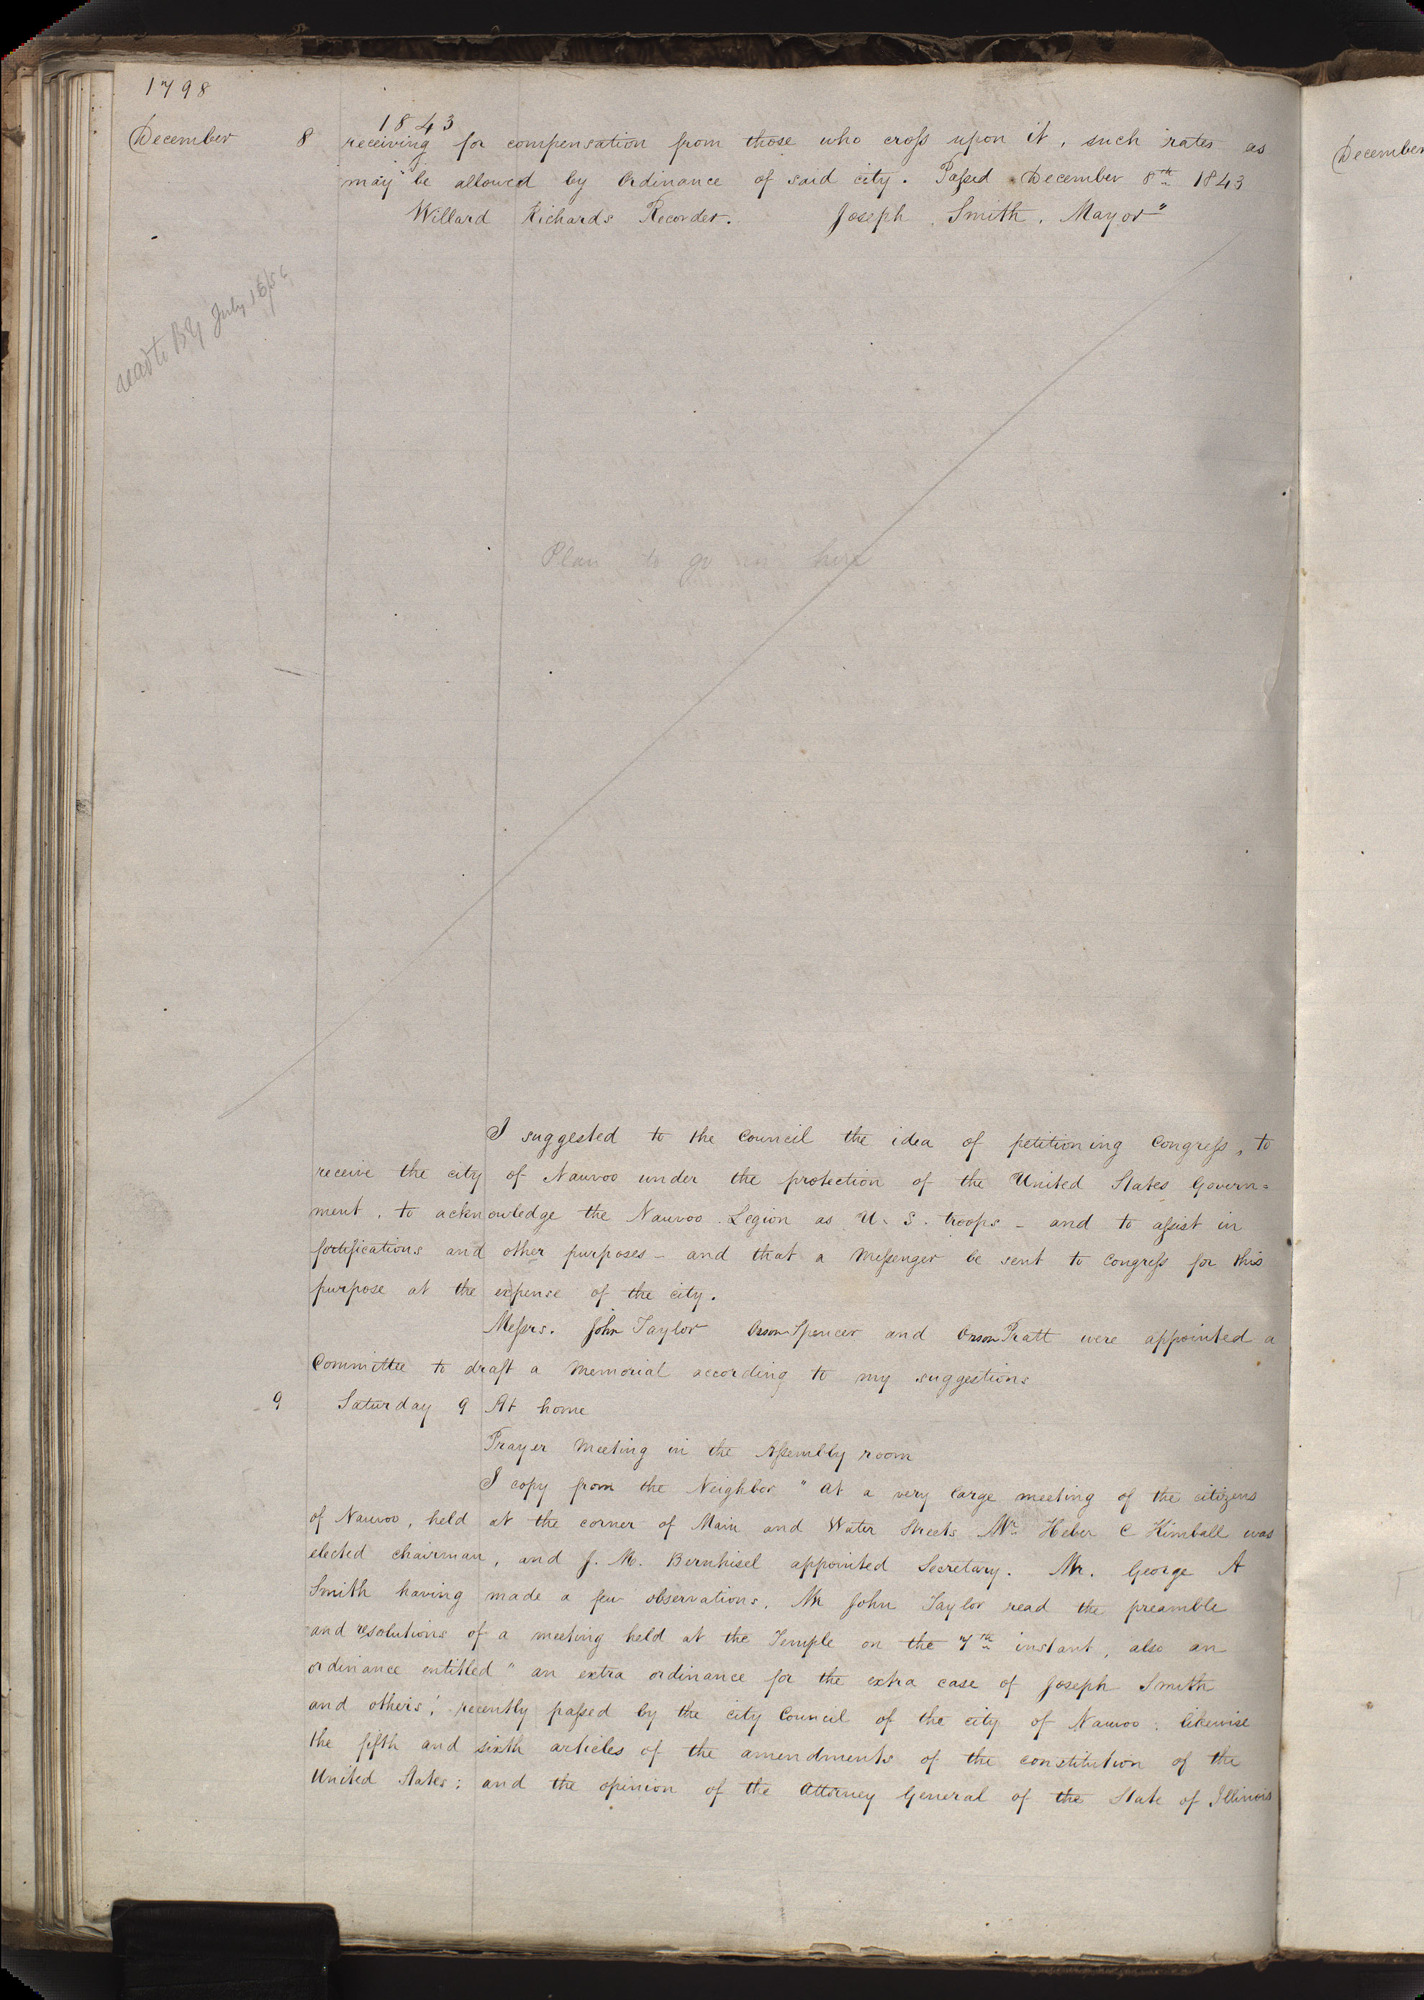 1798
1843
December 8 receiving for compensation from those who cross upon it, such rates as
may be allowed by Ordinance of said city. Passed December 8th 1843
Willard Richards Recorder. Joseph Smith, Mayor"
read to BY July 16/56
Plan to go in here
I suggested to the Council the idea of petitioning Congress, to
receive the city of Nauvoo under the protection of the United States Govern=
ment, to acknowledge the Nauvoo Legion as U. S. troops – and to assist in
fortifications and other purposes – and that a Messenger be sent to Congress for this
purpose at the expense of the city.
Messrs. John Taylor Orson Spencer and Orson Pratt were appointed a
Committee to draft a Memorial according to my suggestions
9 Saturday 9 At home
Prayer Meeting in the Assembly room
I copy from the Neighbor "At a very large meeting of the citizens
of Nauvoo, held at the corner of Main and Water Streets Mr. Heber C Kimball was
elected chairman, and J. M. Bernhisel appointed Secretary. Mr. George A
Smith having made a few observations, Mr John Taylor read the preamble
and resolutions of a meeting held at the Temple on the 7th instant, also an
ordinance entitled "an extra ordinance for the extra case of Joseph Smith
and others,' recently passed by the city Council of the city of Nauvoo; likewise
the fifth and sixth articles of the amendments of the constitution of the
United States; and the opinion of the Attorney General of the State of Illinois
December